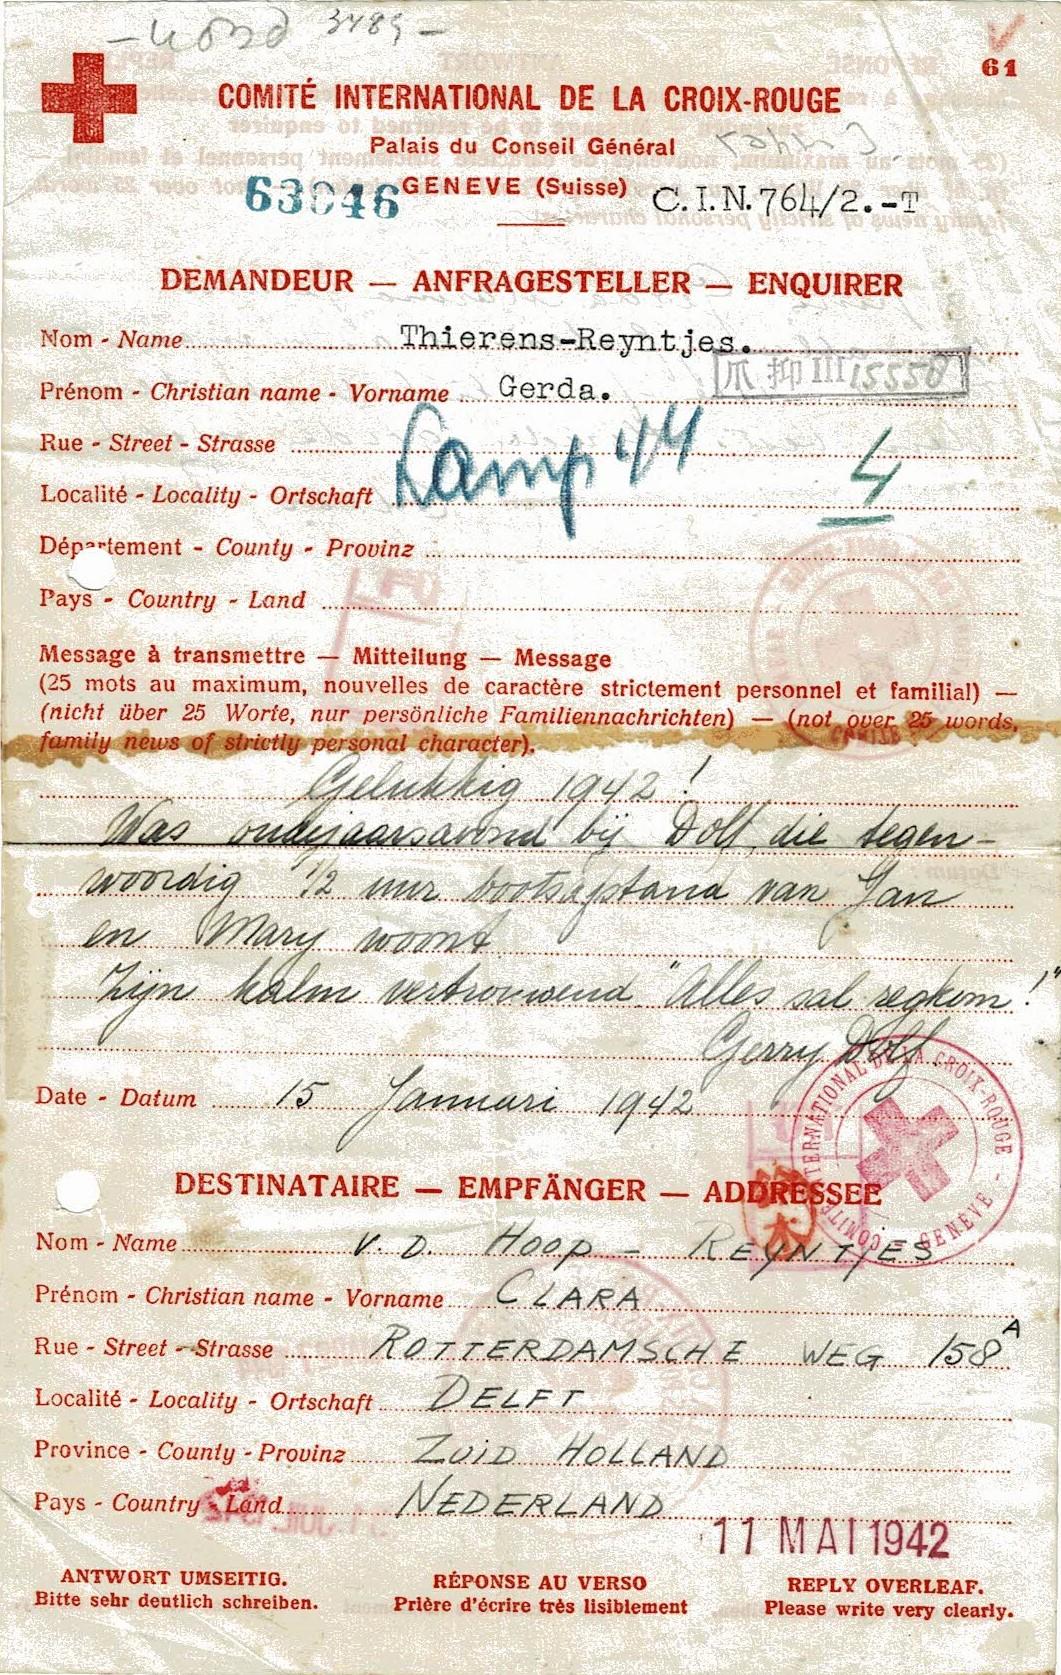 3489 -
61
COMITÉ INTERNATIONAL DE LA CROIX-ROUGE
Palais du Conseil Général
GENEVE (Suisse)
63946
C.I.N.764/2.-T
DEMANDEUR — ANFRAGESTELLER — ENQUIRER
Nom - Name Thierens-Reyntjes.
爪 抑 III 15558
Prénom - Christian name - Vorname Gerda.
Rue - Street - Strasse
Kamp 44
4
Localité - Locality - Ortschaft
Département - County - Provinz
Pays - Country - Land
Message à transmettre — Mitteilung — Message
(25 mots au maximum, nouvelles de caractère strictement personnel et familial) —
(nicht über 25 Worte, nur persönliche Familiennachrichten) — (not over 25 words,
family news of strictly personal character).
Gelukkig 1942!
Was oudejaarsavond bij Dolf, die tegen-
woordig 1/2 uur bootsafstand van Jan
en Mary woont.
Zijn kalm vertrouwend "Alles sal regkom!"
Gerry Dolf
Date - Datum 15 Januari 1942
COMITÉ INTERNATIONAL DE LA CROIX-ROUGE - GENÈVE -
DESTINATAIRE — EMPFÄNGER — ADDRESSEE
Nom - Name V. D. HOOP - REYNTJES
Prénom - Christian name - Vorname CLARA
Rue - Street - Strasse ROTTERDAMSCHE WEG 158A
Localité - Locality - Ortschaft DELFT
Province - County - Provinz ZUID HOLLAND
Pays - Country - Land NEDERLAND
11 MAI 1942
ANTWORT UMSEITIG.
Bitte sehr deutlich schreiben.
RÉPONSE AU VERSO
Prière d'écrire très lisiblement
REPLY OVERLEAF.
Please write very clearly.